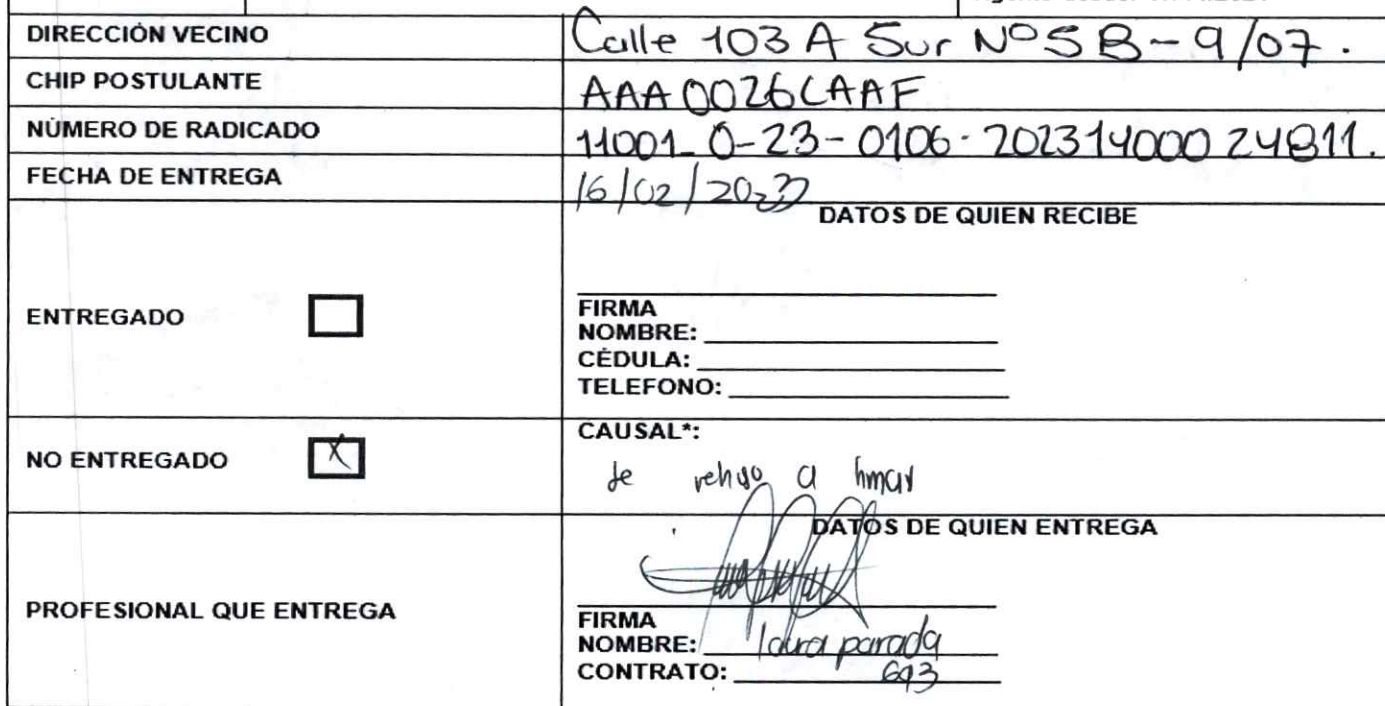 DIRECCIÓN VECINO Calle 103 A Sur Nº 5 B - 9/07.
CHIP POSTULANTE AAA0026CAAF
NÚMERO DE RADICADO 11001-0-23-0106-20231400024811.
FECHA DE ENTREGA 16/02/2023
DATOS DE QUIEN RECIBE
ENTREGADO
FIRMA
NOMBRE:
CÉDULA:
TELEFONO:
CAUSAL*:
NO ENTREGADO X
se rehuso a firmar
DATOS DE QUIEN ENTREGA
PROFESIONAL QUE ENTREGA
FIRMA
NOMBRE: laura parada
CONTRATO: 693